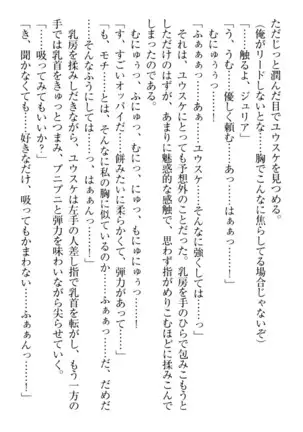 ただしっとり潤んだ目でユウスケを見つめる。
(俺がリードしないとな……胸でこんなに焦らしてる場合じゃないぞ)
「……触るよ、ジュリア」
「う、うむ……優しく頼む……あっ……はぁぁっ……」
むにゅぅうっ……。
「ふぁぁぁっ……そんなに強くしては……っ」
それは、ユウスケにとっても予想外のことだった。乳房を手のひらで包みこもうと
しただけのはずが、あまりに魅惑的な感触で、思わず指がめりこむほどに揉みこんで
しまったのである。
むにゅっ、ふにゅっ、むにっ、にゅっ、もにゅにゅぅっ……。
「す、すごいオッパイだ……餅みたいに柔らかくて、弾力があって……」
「も、モチーーとは、そんなに私の胸に似ているのか……ふぁぁっ……だ、だめだ
……そんなふうにしては……っ、はぁぁんっ……」
乳房を揉みしだきながら、ユウスケは左手の人差し指で乳首を転がし、もう一方の
手では乳首をきゅっとつまみ、プニプニと弾力を味わいながら尖らせていく。
「……吸ってみてもいいか?」
「き、聞かなくても……好きなだけ、吸ってもかまわない……ふぁぁんっ……!」